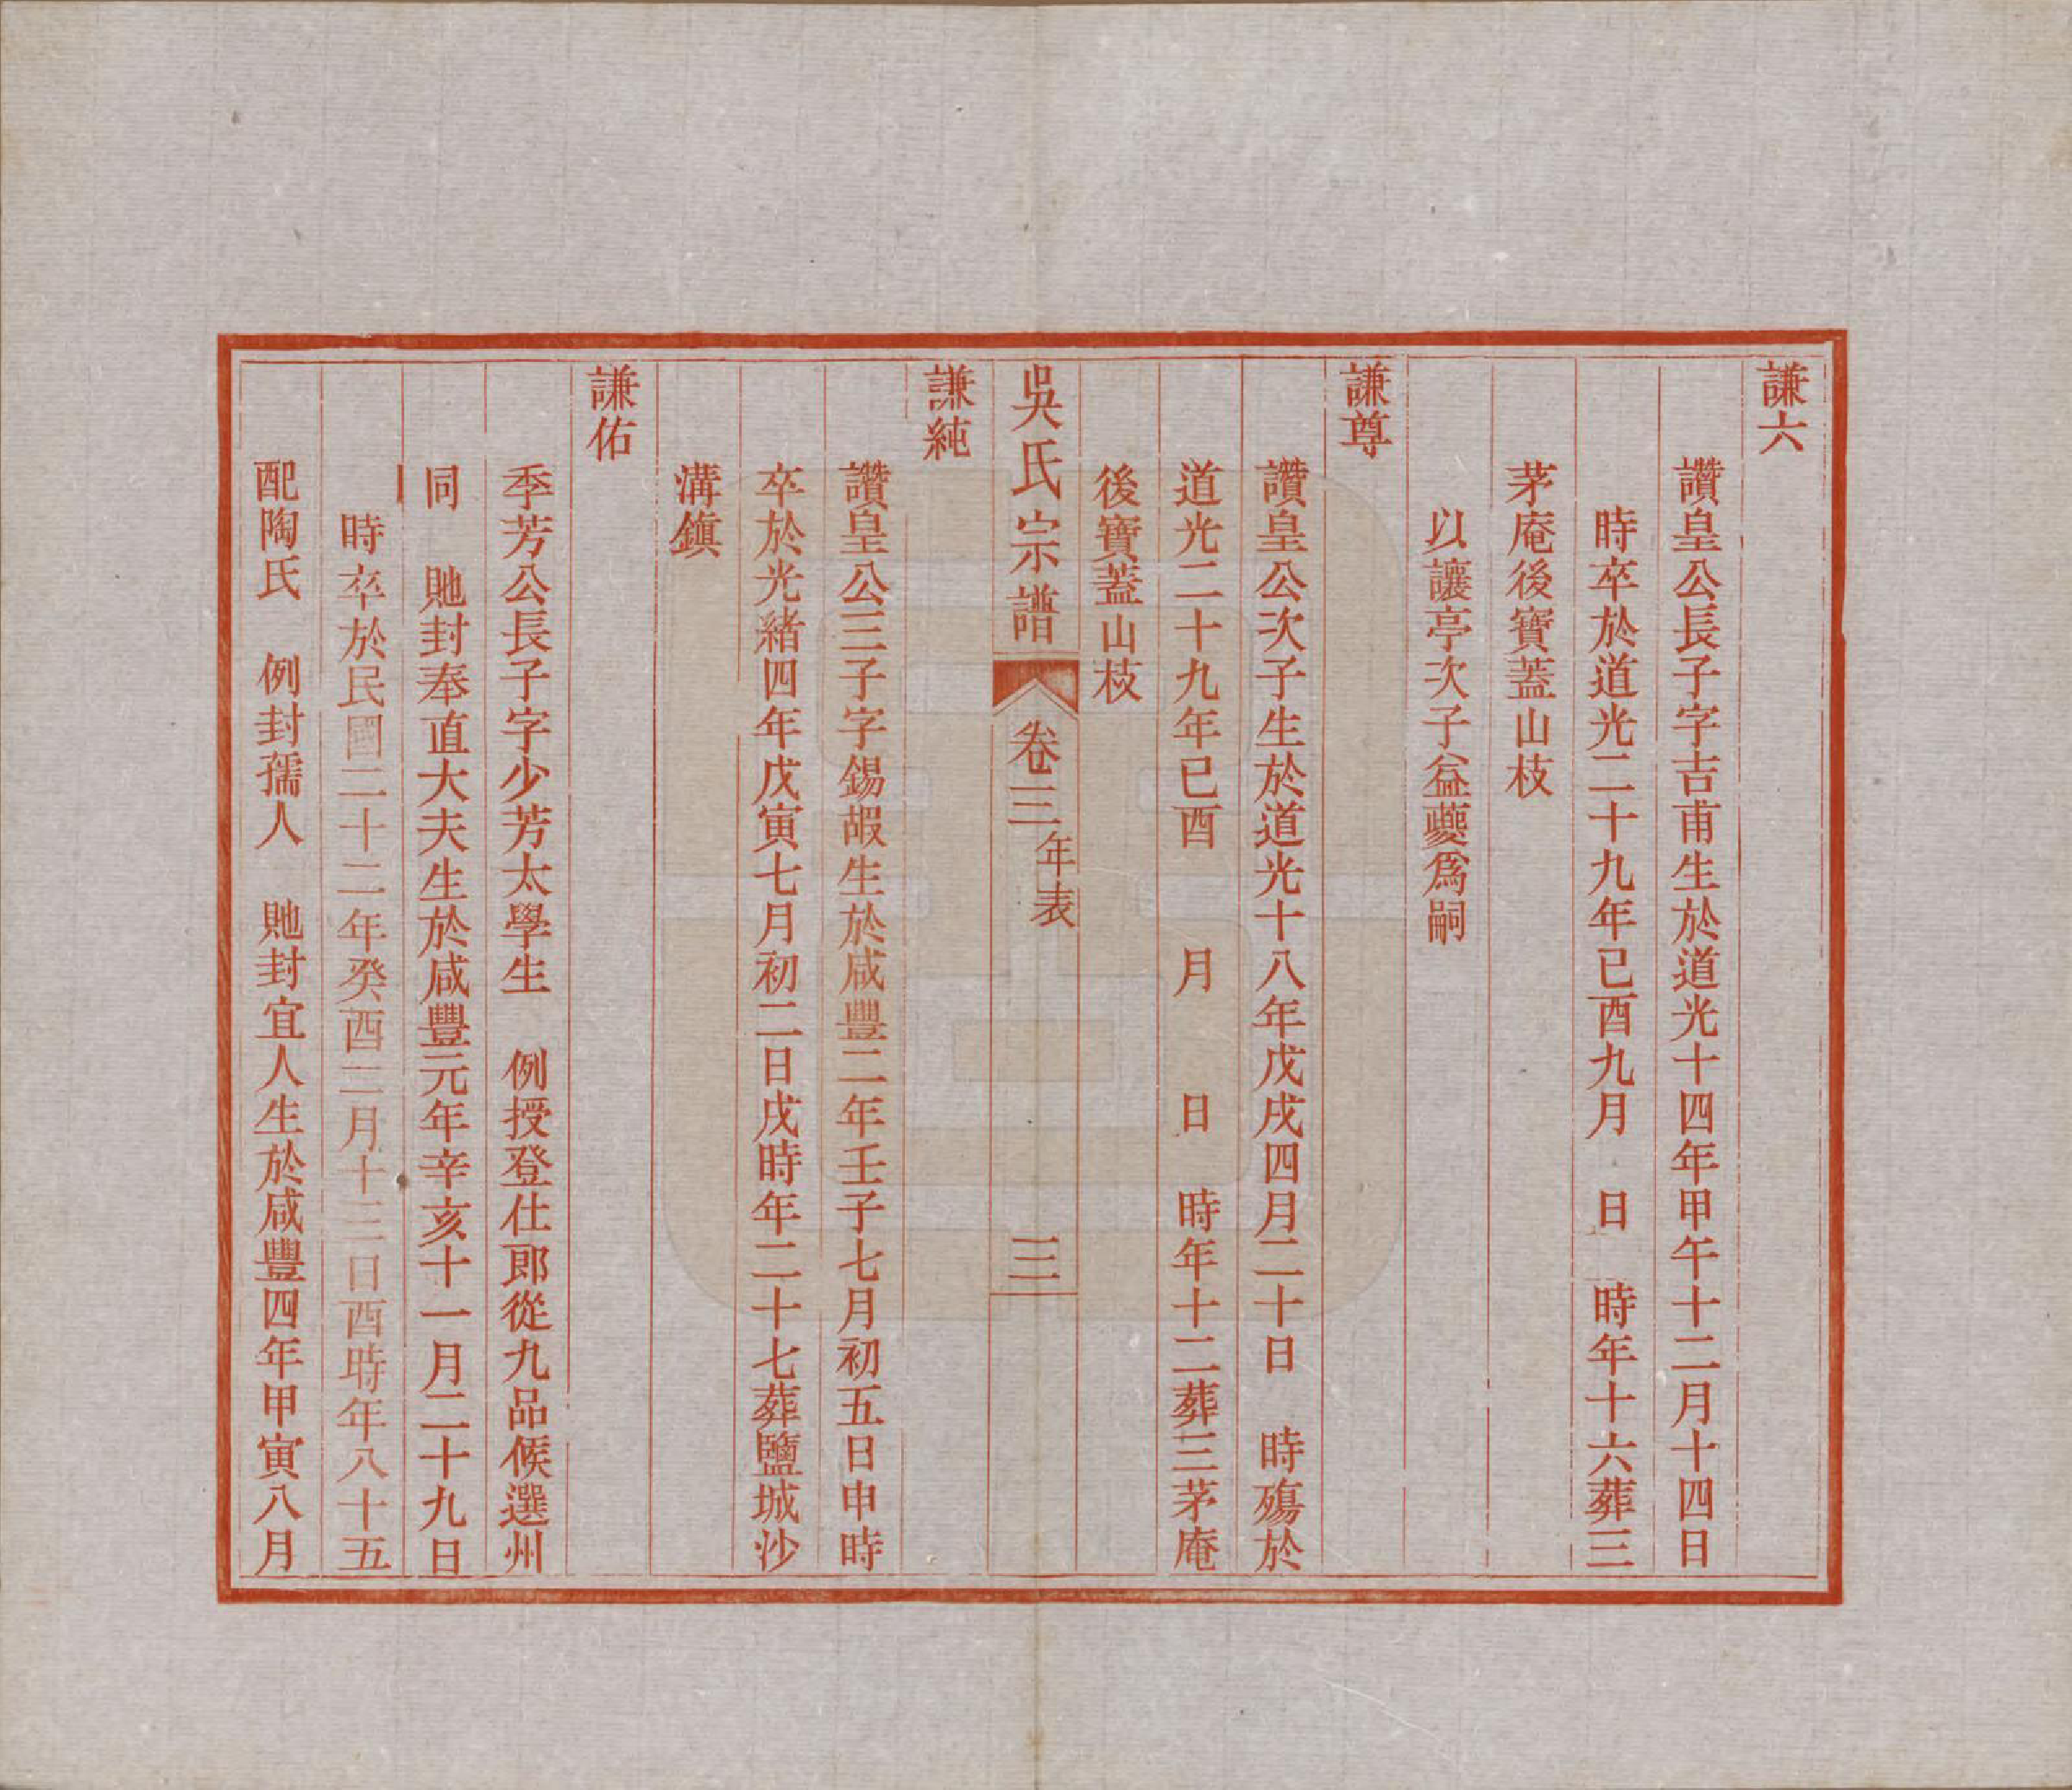 謙六
讚皇公長子字吉甫生於道光十四年甲午十二月十四日
時卒於道光二十九年已酉九月　日　時年十六葬三
茅庵後寶蓋山枝
以讓亭次子益夔爲嗣
謙尊
讚皇公次子生於道光十八年戊戌四月二十日　時殤於
道光二十九年已酉　月　　日　時年十二葬三茅庵
後寶蓋山枝
吳氏宗譜　卷三　年表　三
謙純
讚皇公三子字錫嘏生於咸豐二年壬子七月初五日申時
卒於光緒四年戊寅七月初二日戌時年二十七葬鹽城沙
溝鎭
謙佑
季芳公長子字少芳太學生　例授登仕郎從九品候選州
同　貤封奉直大夫生於咸豐元年辛亥十一月二十九日
時卒於民國二十二年癸酉二月十三日酉時年八十五
配陶氏　例封孺人　貤封宜人生於咸豐四年甲寅八月